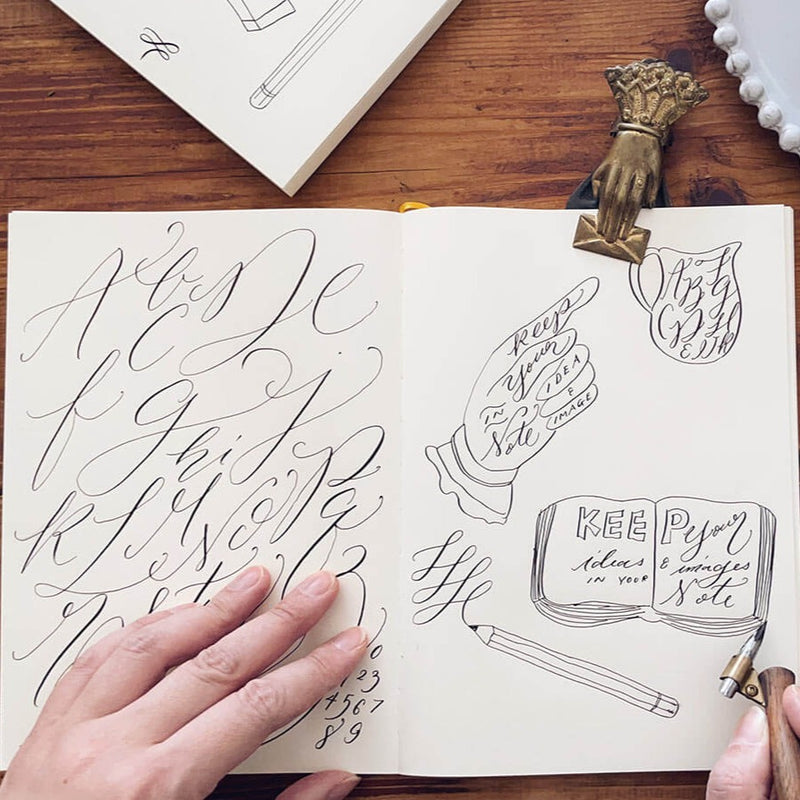 A b c D e
f g h i j
k L M N O P q
0
1 2 3
4 5 6 7
8 9
keep
your
IN
Note
IDEA
&
IMAGE
A b f
B g
C D H
KEEP your
ideas & images
IN YOUR Note